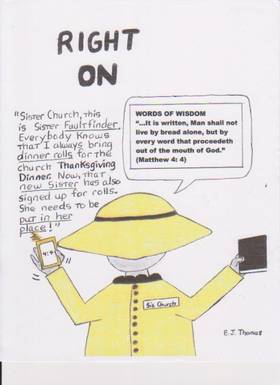 RIGHT
ON
"Sister Church, this
is Sister Faultfinder.
Everybody knows
that I always bring
dinner rolls for the
church Thanksgiving
Dinner. Now, that
new Sister has also
signed up for rolls.
She needs to be
put in her
place!"
WORDS OF WISDOM
"...It is written, Man shall not
live by bread alone, but by
every word that proceedeth
out of the mouth of God."
(Matthew 4: 4)
4:4
Sis. Church
E.J. Thomas